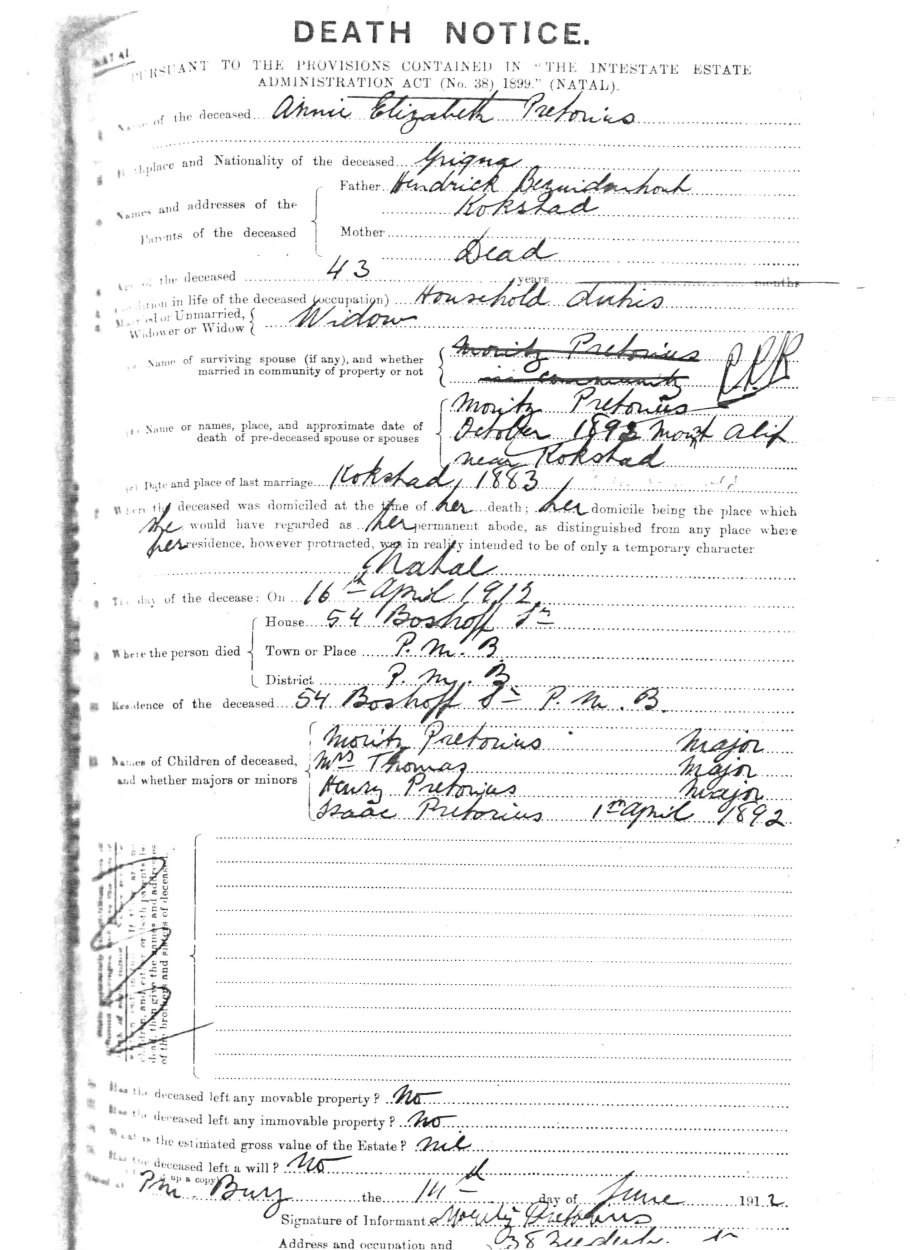 DEATH NOTICE.
NATAL
PURSUANT TO THE PROVISIONS CONTAINED IN "THE INTESTATE ESTATE
ADMINISTRATION ACT (No. 38) 1899." (NATAL).
Name of the deceased Annie Elizabeth Pretorius
Birthplace and Nationality of the deceased Griqua
Names and addresses of the Parents of the deceased
Father Hendrick Bezuidenhout
Kokstad
Mother
Dead
Age of the deceased 43 years months
Condition in life of the deceased (occupation) Household duties
Married or Unmarried,
Widower or Widow Widow
Name of surviving spouse (if any), and whether
married in community of property or not
Moritz Pretorius
in community
Name or names, place, and approximate date of
death of pre-deceased spouse or spouses
Moritz Pretorius
October 1892 Mount
near Kokstad
(c) Date and place of last marriage Kokstad, 1883
Where the deceased was domiciled at the time of her death; her domicile being the place which
she would have regarded as her permanent abode, as distinguished from any place where
her residence, however protracted, was in reality intended to be of only a temporary character
Natal
The day of the decease: On 16th April 1912
Where the person died
House 54 Boshoff St
Town or Place P. M. B.
District P. M. B.
Residence of the deceased 54 Boshoff St P. M. B.
Names of Children of deceased,
and whether majors or minors
Moritz Pretorius Major
Mrs Thomas Major
Henry Pretorius Major
Isaac Pretorius 1st April 1892
dead, then give the names and addresses
of the brothers and sisters of deceased.
Has the deceased left any movable property? No
Has the deceased left any immovable property? No
What is the estimated gross value of the Estate? Nil
Has the deceased left a will? No
up a copy
PM. Burg the 14th day of June 1912
Signature of Informant Moritz Pretorius
Address and occupation and 38